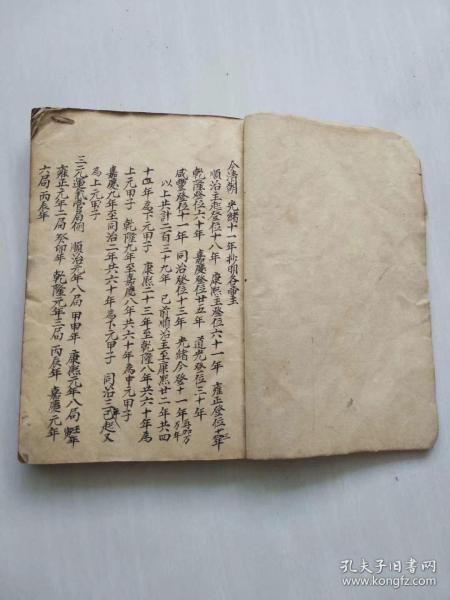 今清朝 光緒十一年抄明各帝主
順治主起登位十八年 康熙主登位六十一年 雍正登位十三年
乾隆登位六十年 嘉慶登位廿五年 道光登位三十年
咸豐登位十一年 同治登位十三年 光緒今登十一年
以上共計二百三十九年 已前順治主至康熙廿二年共四
十四年為下元甲子 康熙二十三年至乾隆八年共六十年為
上元甲子 乾隆九年至嘉慶八年共六十年為中元甲子
嘉慶九年至同治二年共六十年為下元甲子 同治三年起又
為上元甲子
三元運氣管局例 順治元年八局甲申年 康熙元年八局壬寅年
雍正元年二局癸卯年 乾隆元年三局丙辰年 嘉慶元年
六局丙辰年
孔夫子旧书网
www.kongfz.com